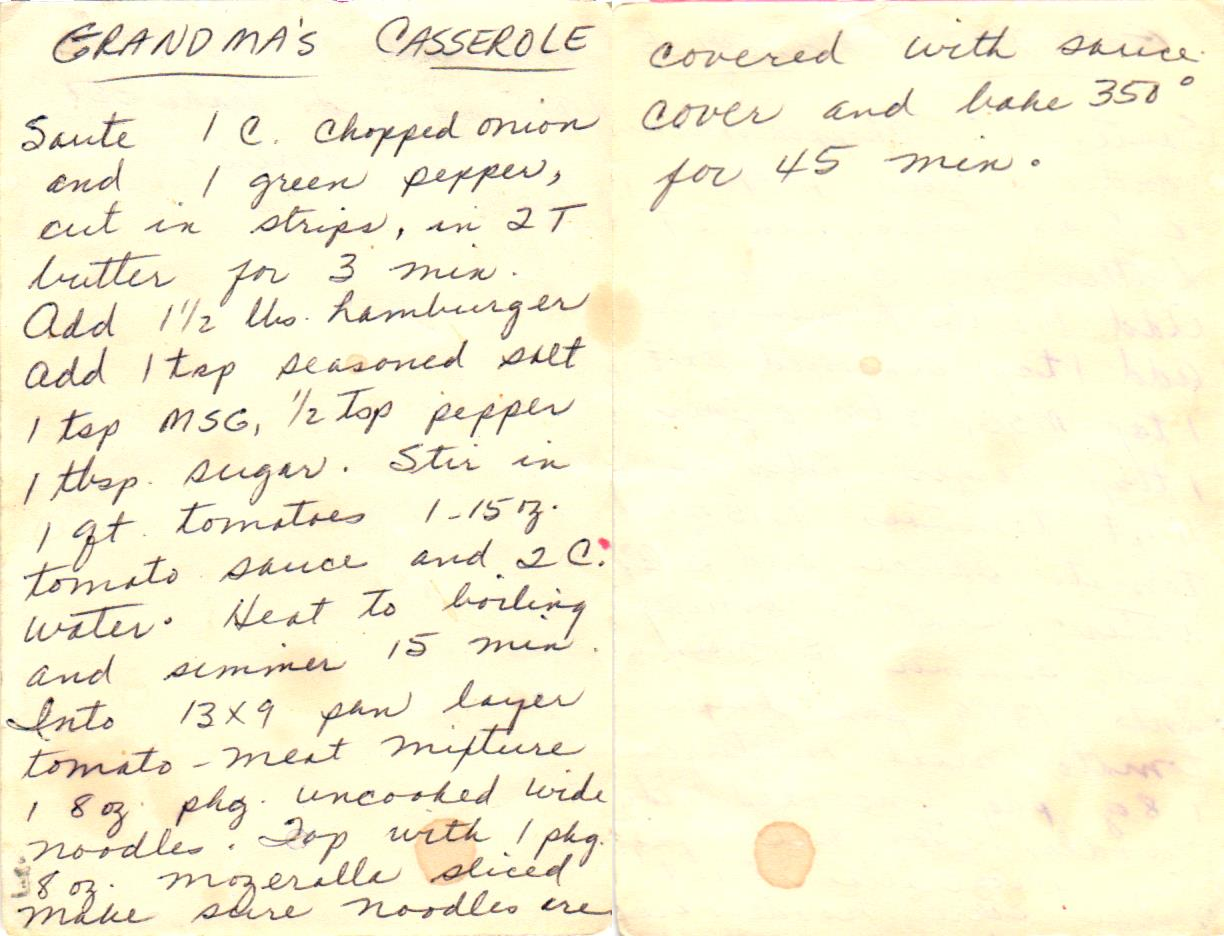 GRANDMA'S CASSEROLE
Saute 1 C. chopped onion
and 1 green pepper,
cut in strips, in 2 T
butter for 3 min.
Add 1 1/2 lbs. hamburger
Add 1 tsp seasoned salt
1 tsp MSG, 1/2 tsp pepper
1 tbsp. sugar. Stir in
1 qt. tomatoes 1-15 oz.
tomato sauce and 2 C.
water. Heat to boiling
and simmer 15 min.
Into 13X9 pan layer
tomato-meat mixture
1 8 oz. pkg. uncooked wide
noodles. Top with 1 pkg.
8 oz. mozeralla sliced
make sure noodles are
covered with sauce.
cover and bake 350°
for 45 min.